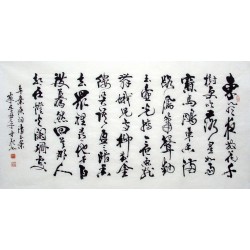 東風夜放花千
樹更吹落星如雨
寶馬雕車香滿
路鳳簫聲動
玉壺光轉一夜魚龍
舞蛾兒雪柳黃金
縷笑語盈盈暗香
去眾里尋他千百
度驀然回首那人
卻在燈火闌珊處